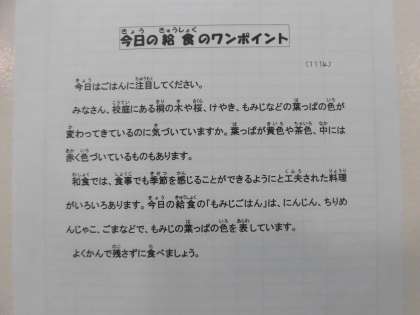 今日の給食のワンポイント
(11月14日)
今日はごはんに注目してください。
みなさん、校庭にある桐の木や桜、けやき、もみじなどの葉っぱの色が
変わってきているのに気づいていますか。葉っぱが黄色や茶色、中には
赤く色づいているものもあります。
和食では、食事でも季節を感じることができるようにと工夫された料理
がいろいろあります。今日の給食の「もみじごはん」は、にんじん、ちりめ
んじゃこ、ごまなどで、もみじの葉っぱの色を表しています。
よくかんで残さずに食べましょう。